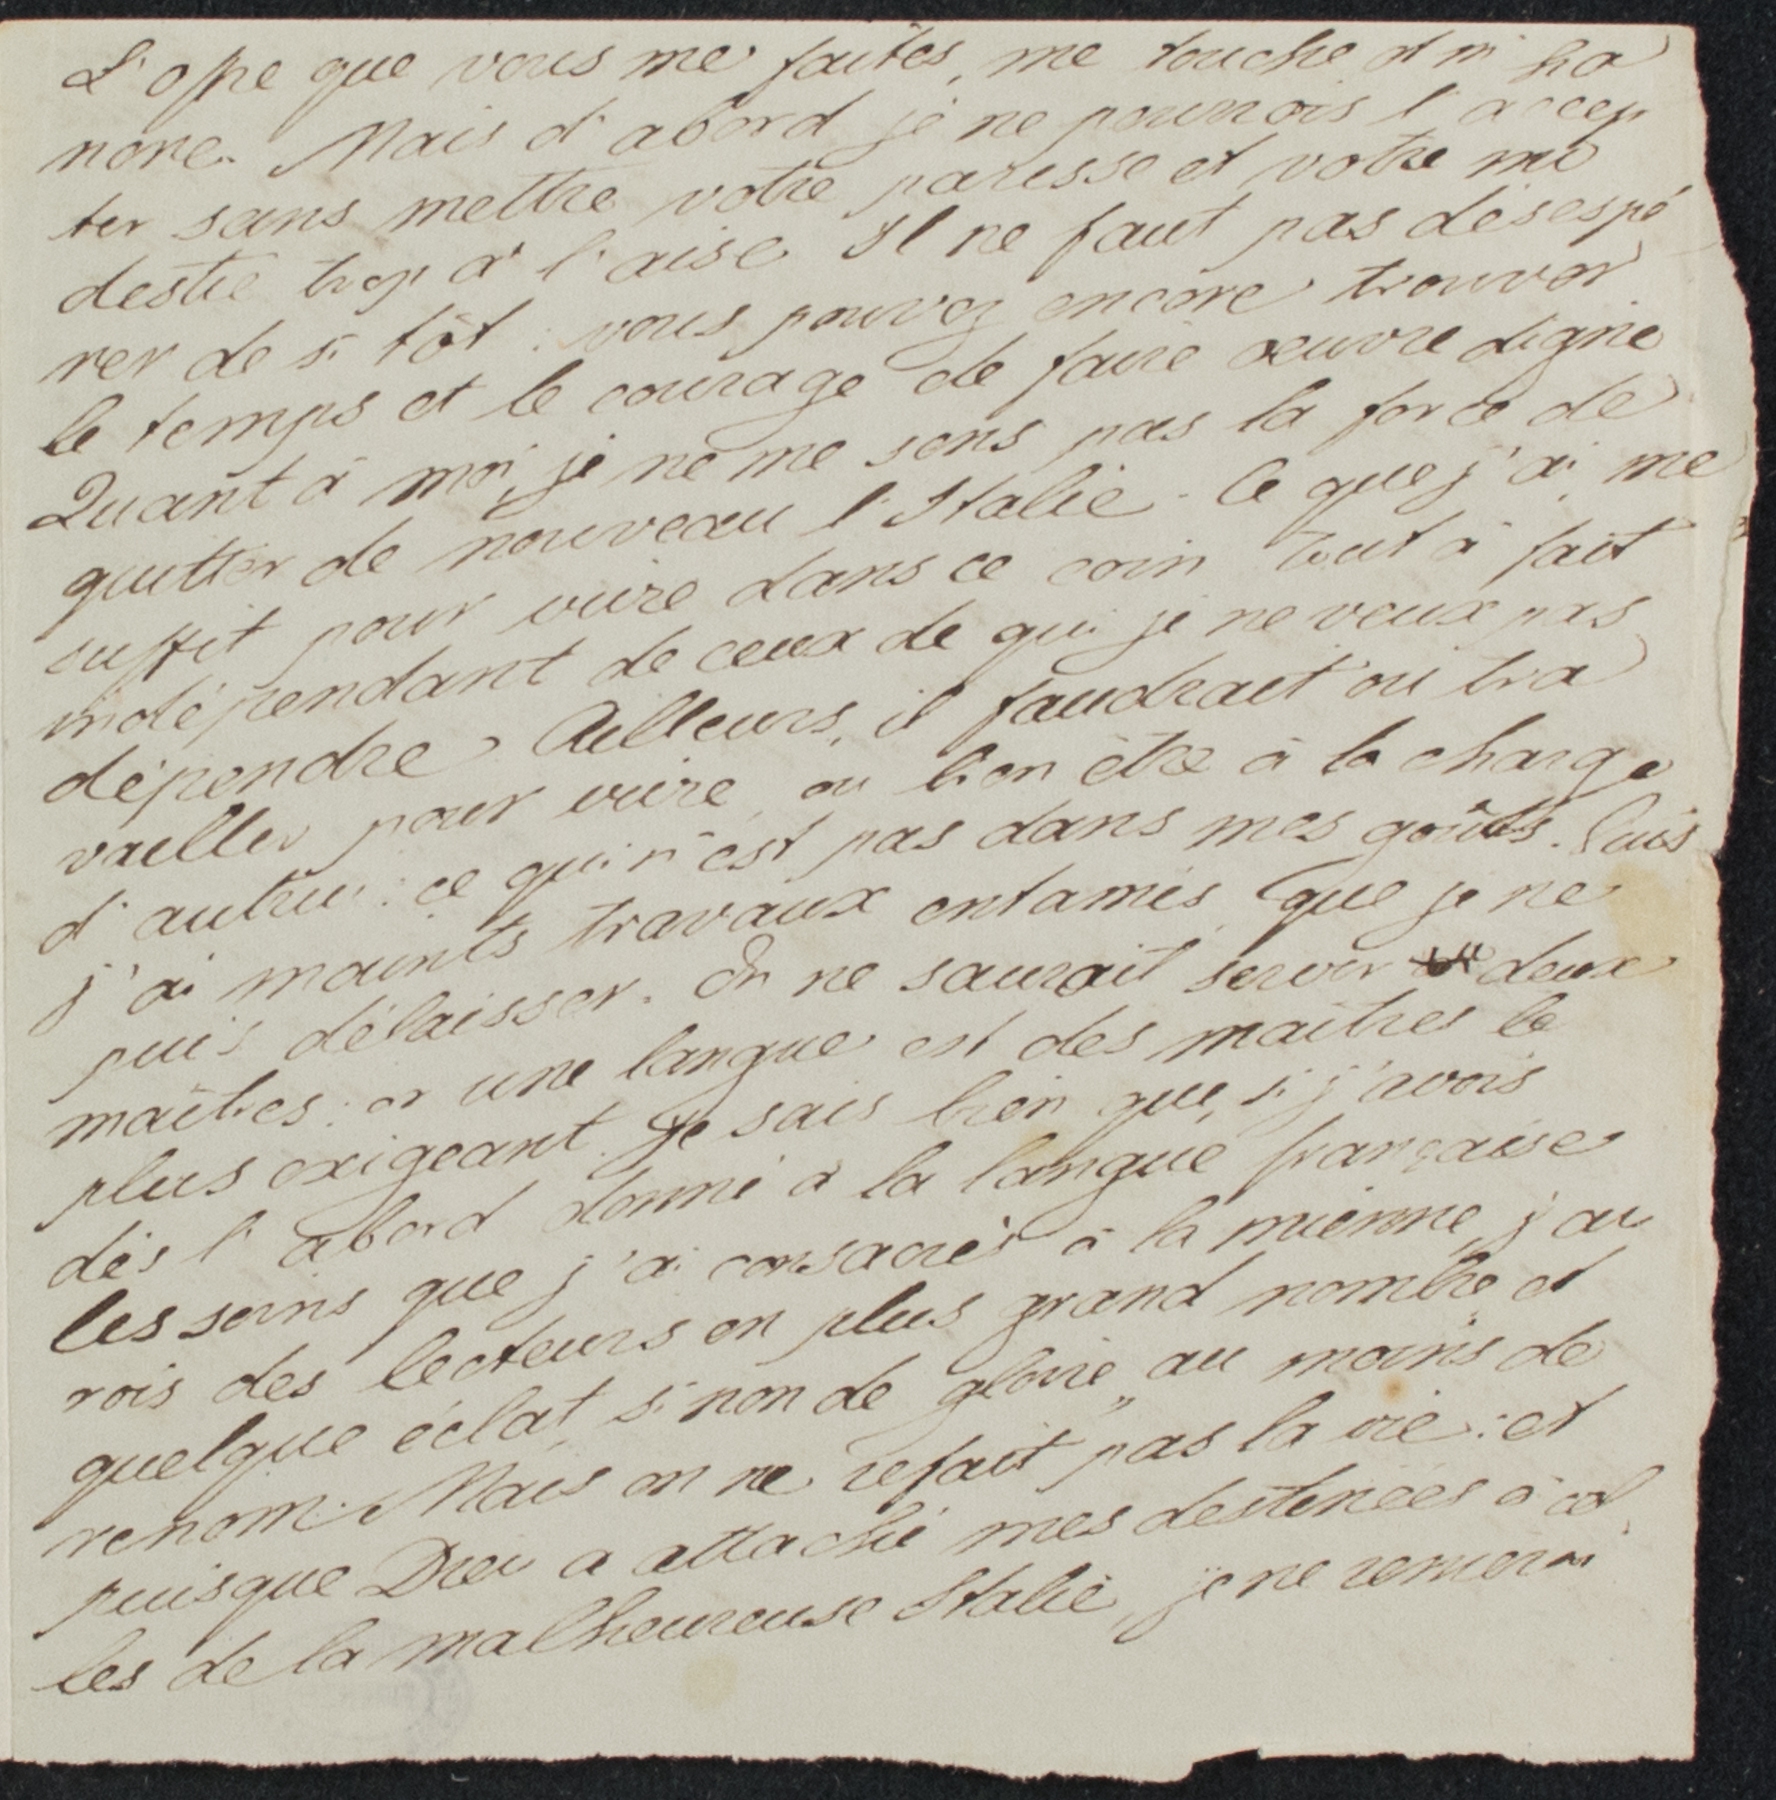 L'offre que vous me faites, me touche et m'ho
nore. Mais d'abord je ne pourrois l'accep
ter sans mettre votre paresse et votre mo
destie trop à l'aise. Il ne faut pas désespé
rer de si tôt: vous pouvez encore trouver
le temps et le courage de faire œuvre digne
Quant à moi, je ne me sens pas la force de
quitter de nouveau l'Italie. Ce que j'ai, me
suffit pour vivre dans ce coin tout à fait
indépendant de ceux de qui je ne veux pas
dépendre. Ailleurs, il faudrait ou tra
vailler pour vivre, ou bien être à la charge
d'autrui: ce qui n'est pas dans mes goûts. Puis
j'ai maints travaux entamés, que je ne
puis délaisser. On ne saurait servir deux
maîtres: or une langue est des maîtres le
plus exigeant. Je sais bien que, si j'avois
dès l'abord donné à la langue française
les soins que j'ai consacrés à la mienne, j'au
rois des lecteurs en plus grand nombre et
quelque éclat, si non de gloire, au moins de
renom. Mais on ne refait pas la vie: et
puisque Dieu a attaché mes destinées à cel
les de la malheureuse Italie, je ne renierai